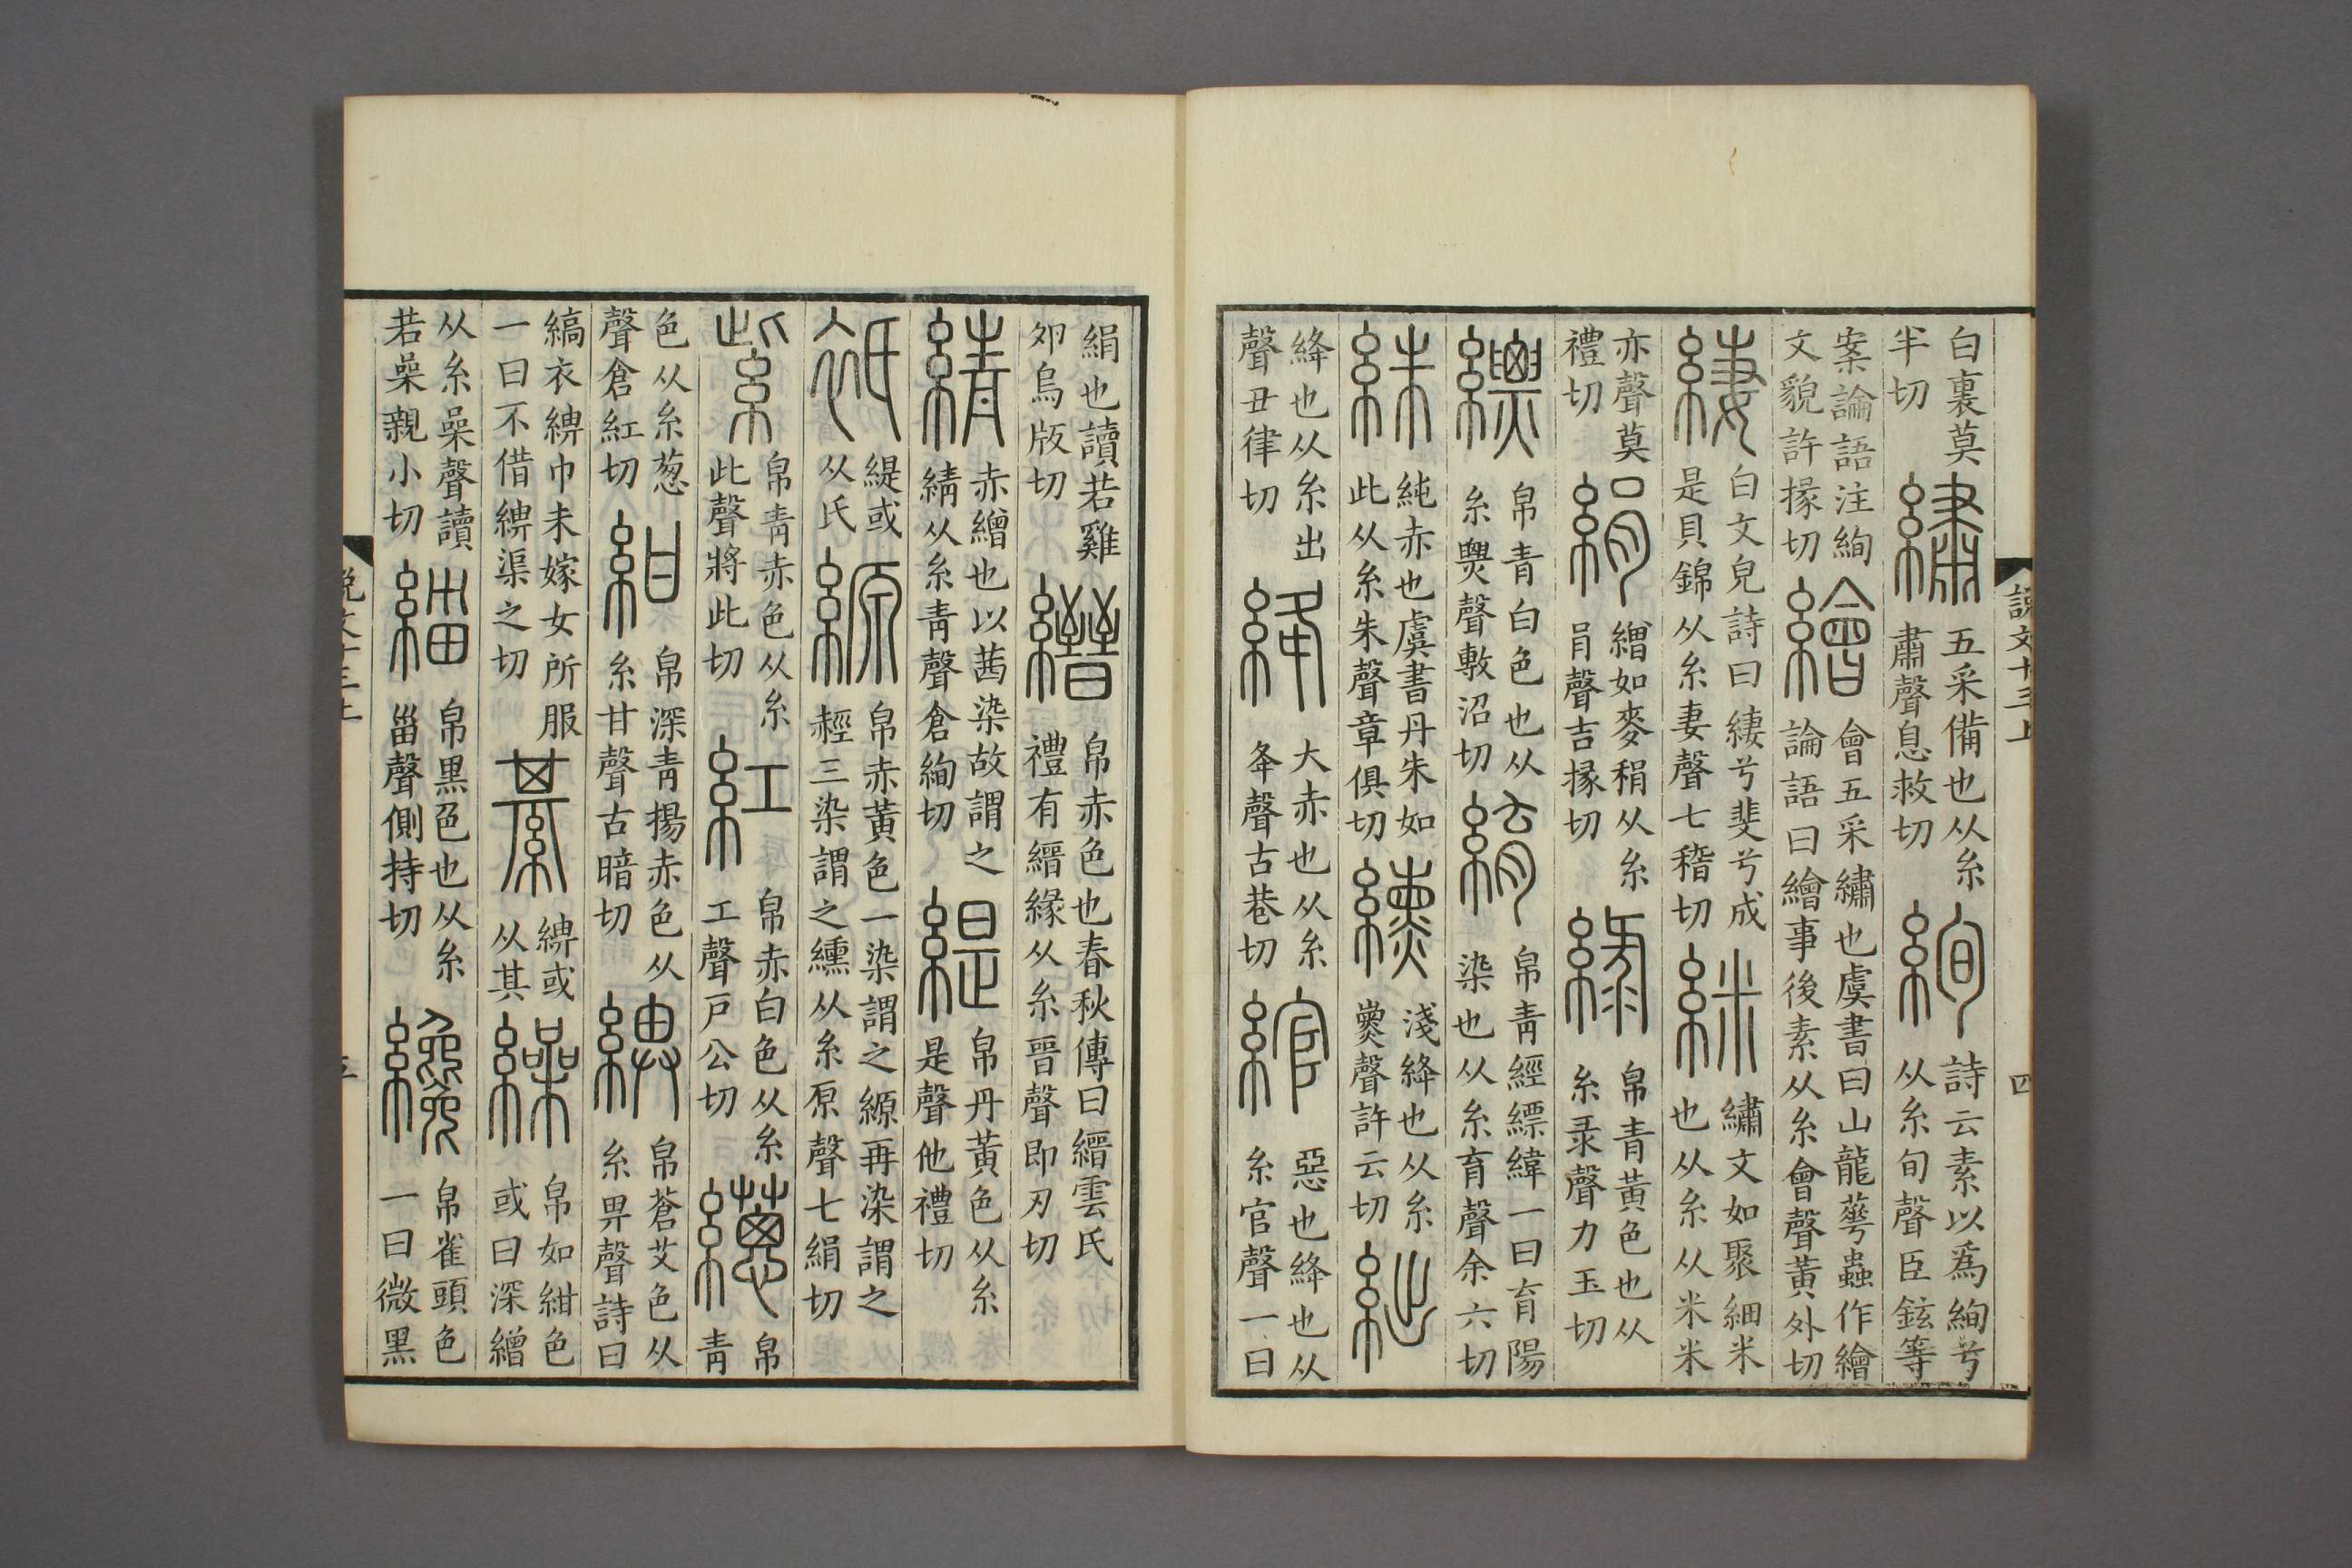 説文十三上 四
白裏莫半切繡五采備也从糸肅聲息救切絢詩云素以爲絢兮从糸旬聲臣鉉等
案論語注絢文貌許掾切繪會五采繡也虞書曰山龍蕐蟲作繪論語曰繪事後素从糸會聲黃外切
緀白文皃詩曰緀兮斐兮成是貝錦从糸妻聲七稽切絲繡文如聚細米也从糸从米米
亦聲莫禮切絹繒如麥稍从糸肙聲吉掾切綠帛青黃色也从糸彔聲力玉切
縹帛青白色也从糸㶾聲敷沼切䋭帛青經縹緯一曰育陽染也从糸育聲余六切
絑純赤也虞書丹朱如此从糸朱聲章俱切纁淺絳也从糸熏聲許云切絀
絳也从糸出聲丑律切絳大赤也从糸夅聲古巷切綰惡也絳也从糸官聲一曰
絹也讀若雞夘烏版切縉帛赤色也春秋傳曰縉雲氏禮有縉緣从糸晉聲即刃切
綪赤繒也以茜染故謂之綪从糸青聲倉絢切緹帛丹黃色从糸是聲他禮切
衹緹或从氏縓帛赤黃色一染謂之縓再染謂之䞓三染謂之纁从糸原聲七絹切
紫帛青赤色从糸此聲將此切紅帛赤白色从糸工聲戸公切繱帛青
色从糸葱聲倉紅切紺帛深青揚赤色从糸甘聲古暗切綥帛蒼艾色从糸畀聲詩曰
縞衣綥巾未嫁女所服一曰不借綥渠之切綦綥或从其繰帛如紺色或曰深繒
从糸喿聲讀若喿親小切緇帛黑色也从糸甾聲側持切纔帛雀頭色一曰微黑
説文十三上 五